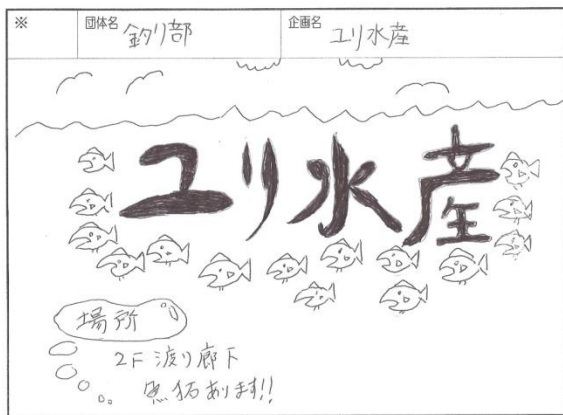 ※
団体名 釣り部
企画名 ユリ水産
ユリ水産
場所
2F 渡り廊下
魚拓あります!!